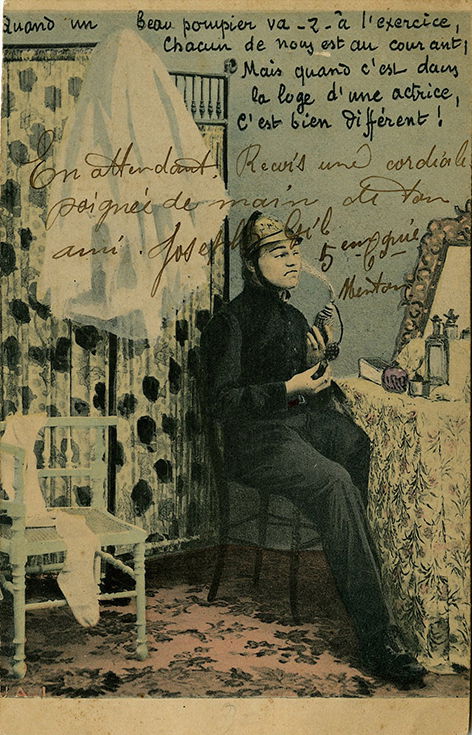 Quand un Beau pompier va-z-à l'exercice,
Chacun de nous est au courant;
Mais quand c'est dans
la loge d'une actrice,
C'est bien différent !
En attendant. Recois une cordiale
poignée de main de ton
ami. Joseph
5
Menton